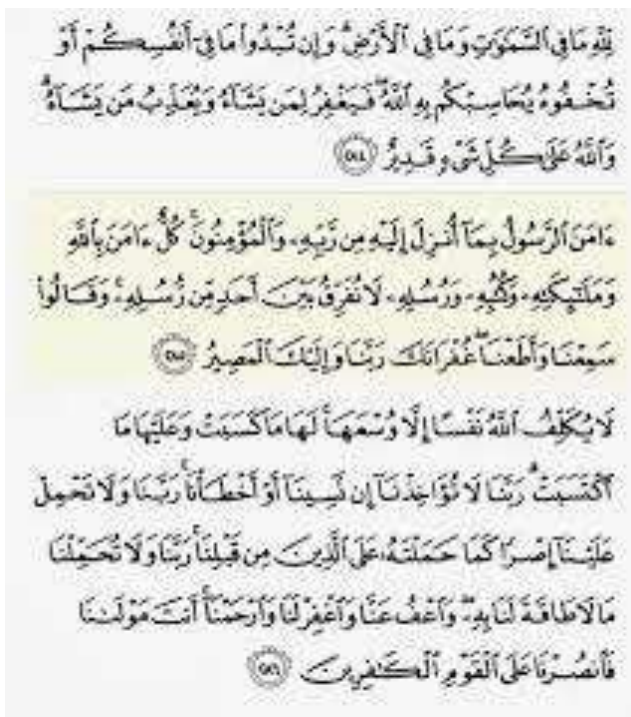 لِّلَّهِ مَا فِي ٱلسَّمَٰوَٰتِ وَمَا فِي ٱلْأَرْضِ ۗ وَإِن تُبْدُوا۟ مَا فِىٓ أَنفُسِكُمْ أَوْ
تُخْفُوهُ يُحَاسِبْكُم بِهِ ٱللَّهُ ۖ فَيَغْفِرُ لِمَن يَشَآءُ وَيُعَذِّبُ مَن يَشَآءُ ۗ
وَٱللَّهُ عَلَىٰ كُلِّ شَىْءٍ قَدِيرٌ ﴿٢٨٤﴾
ءَامَنَ ٱلرَّسُولُ بِمَآ أُنزِلَ إِلَيْهِ مِن رَّبِّهِۦ وَٱلْمُؤْمِنُونَ ۚ كُلٌّ ءَامَنَ بِٱللَّهِ
وَمَلَٰٓئِكَتِهِۦ وَكُتُبِهِۦ وَرُسُلِهِۦ لَا نُفَرِّقُ بَيْنَ أَحَدٍ مِّن رُّسُلِهِۦ ۚ وَقَالُوا۟
سَمِعْنَا وَأَطَعْنَا ۖ غُفْرَانَكَ رَبَّنَا وَإِلَيْكَ ٱلْمَصِيرُ ﴿٢٨٥﴾
لَا يُكَلِّفُ ٱللَّهُ نَفْسًا إِلَّا وُسْعَهَا ۚ لَهَا مَا كَسَبَتْ وَعَلَيْهَا مَا
ٱكْتَسَبَتْ ۗ رَبَّنَا لَا تُؤَاخِذْنَآ إِن نَّسِينَآ أَوْ أَخْطَأْنَا ۚ رَبَّنَا وَلَا تَحْمِلْ
عَلَيْنَآ إِصْرًا كَمَا حَمَلْتَهُۥ عَلَى ٱلَّذِينَ مِن قَبْلِنَا ۚ رَبَّنَا وَلَا تُحَمِّلْنَا
مَا لَا طَاقَةَ لَنَا بِهِۦ ۖ وَٱعْفُ عَنَّا وَٱغْفِرْ لَنَا وَٱرْحَمْنَآ ۚ أَنتَ مَوْلَىٰنَا
فَٱنصُرْنَا عَلَى ٱلْقَوْمِ ٱلْكَٰفِرِينَ ﴿٢٨٦﴾